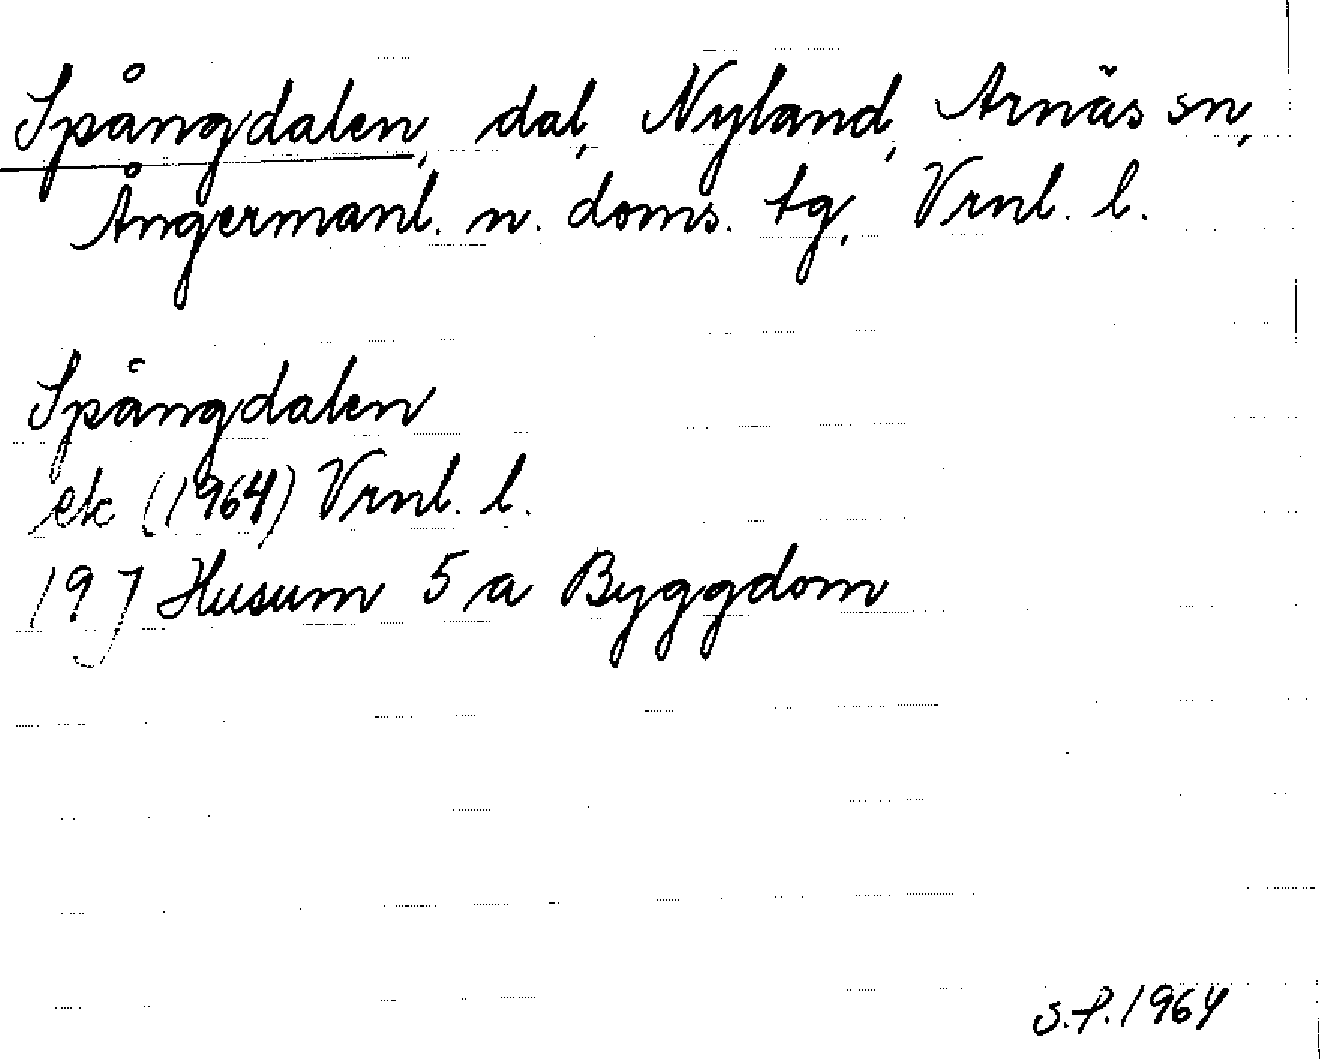 Spångdalen, dal, Nyland, Arnäs sn,
Ångermanl. n. doms. tg, Vrnl. l.
Spångdalen
ek (1964) Vrnl. l.
19 J Husum 5 a Byggdom
S.P. 1964